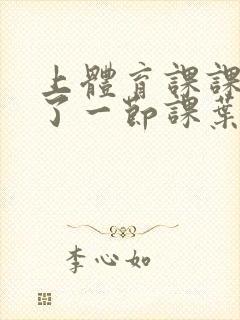 上體育課課
了一節課葉
李心如